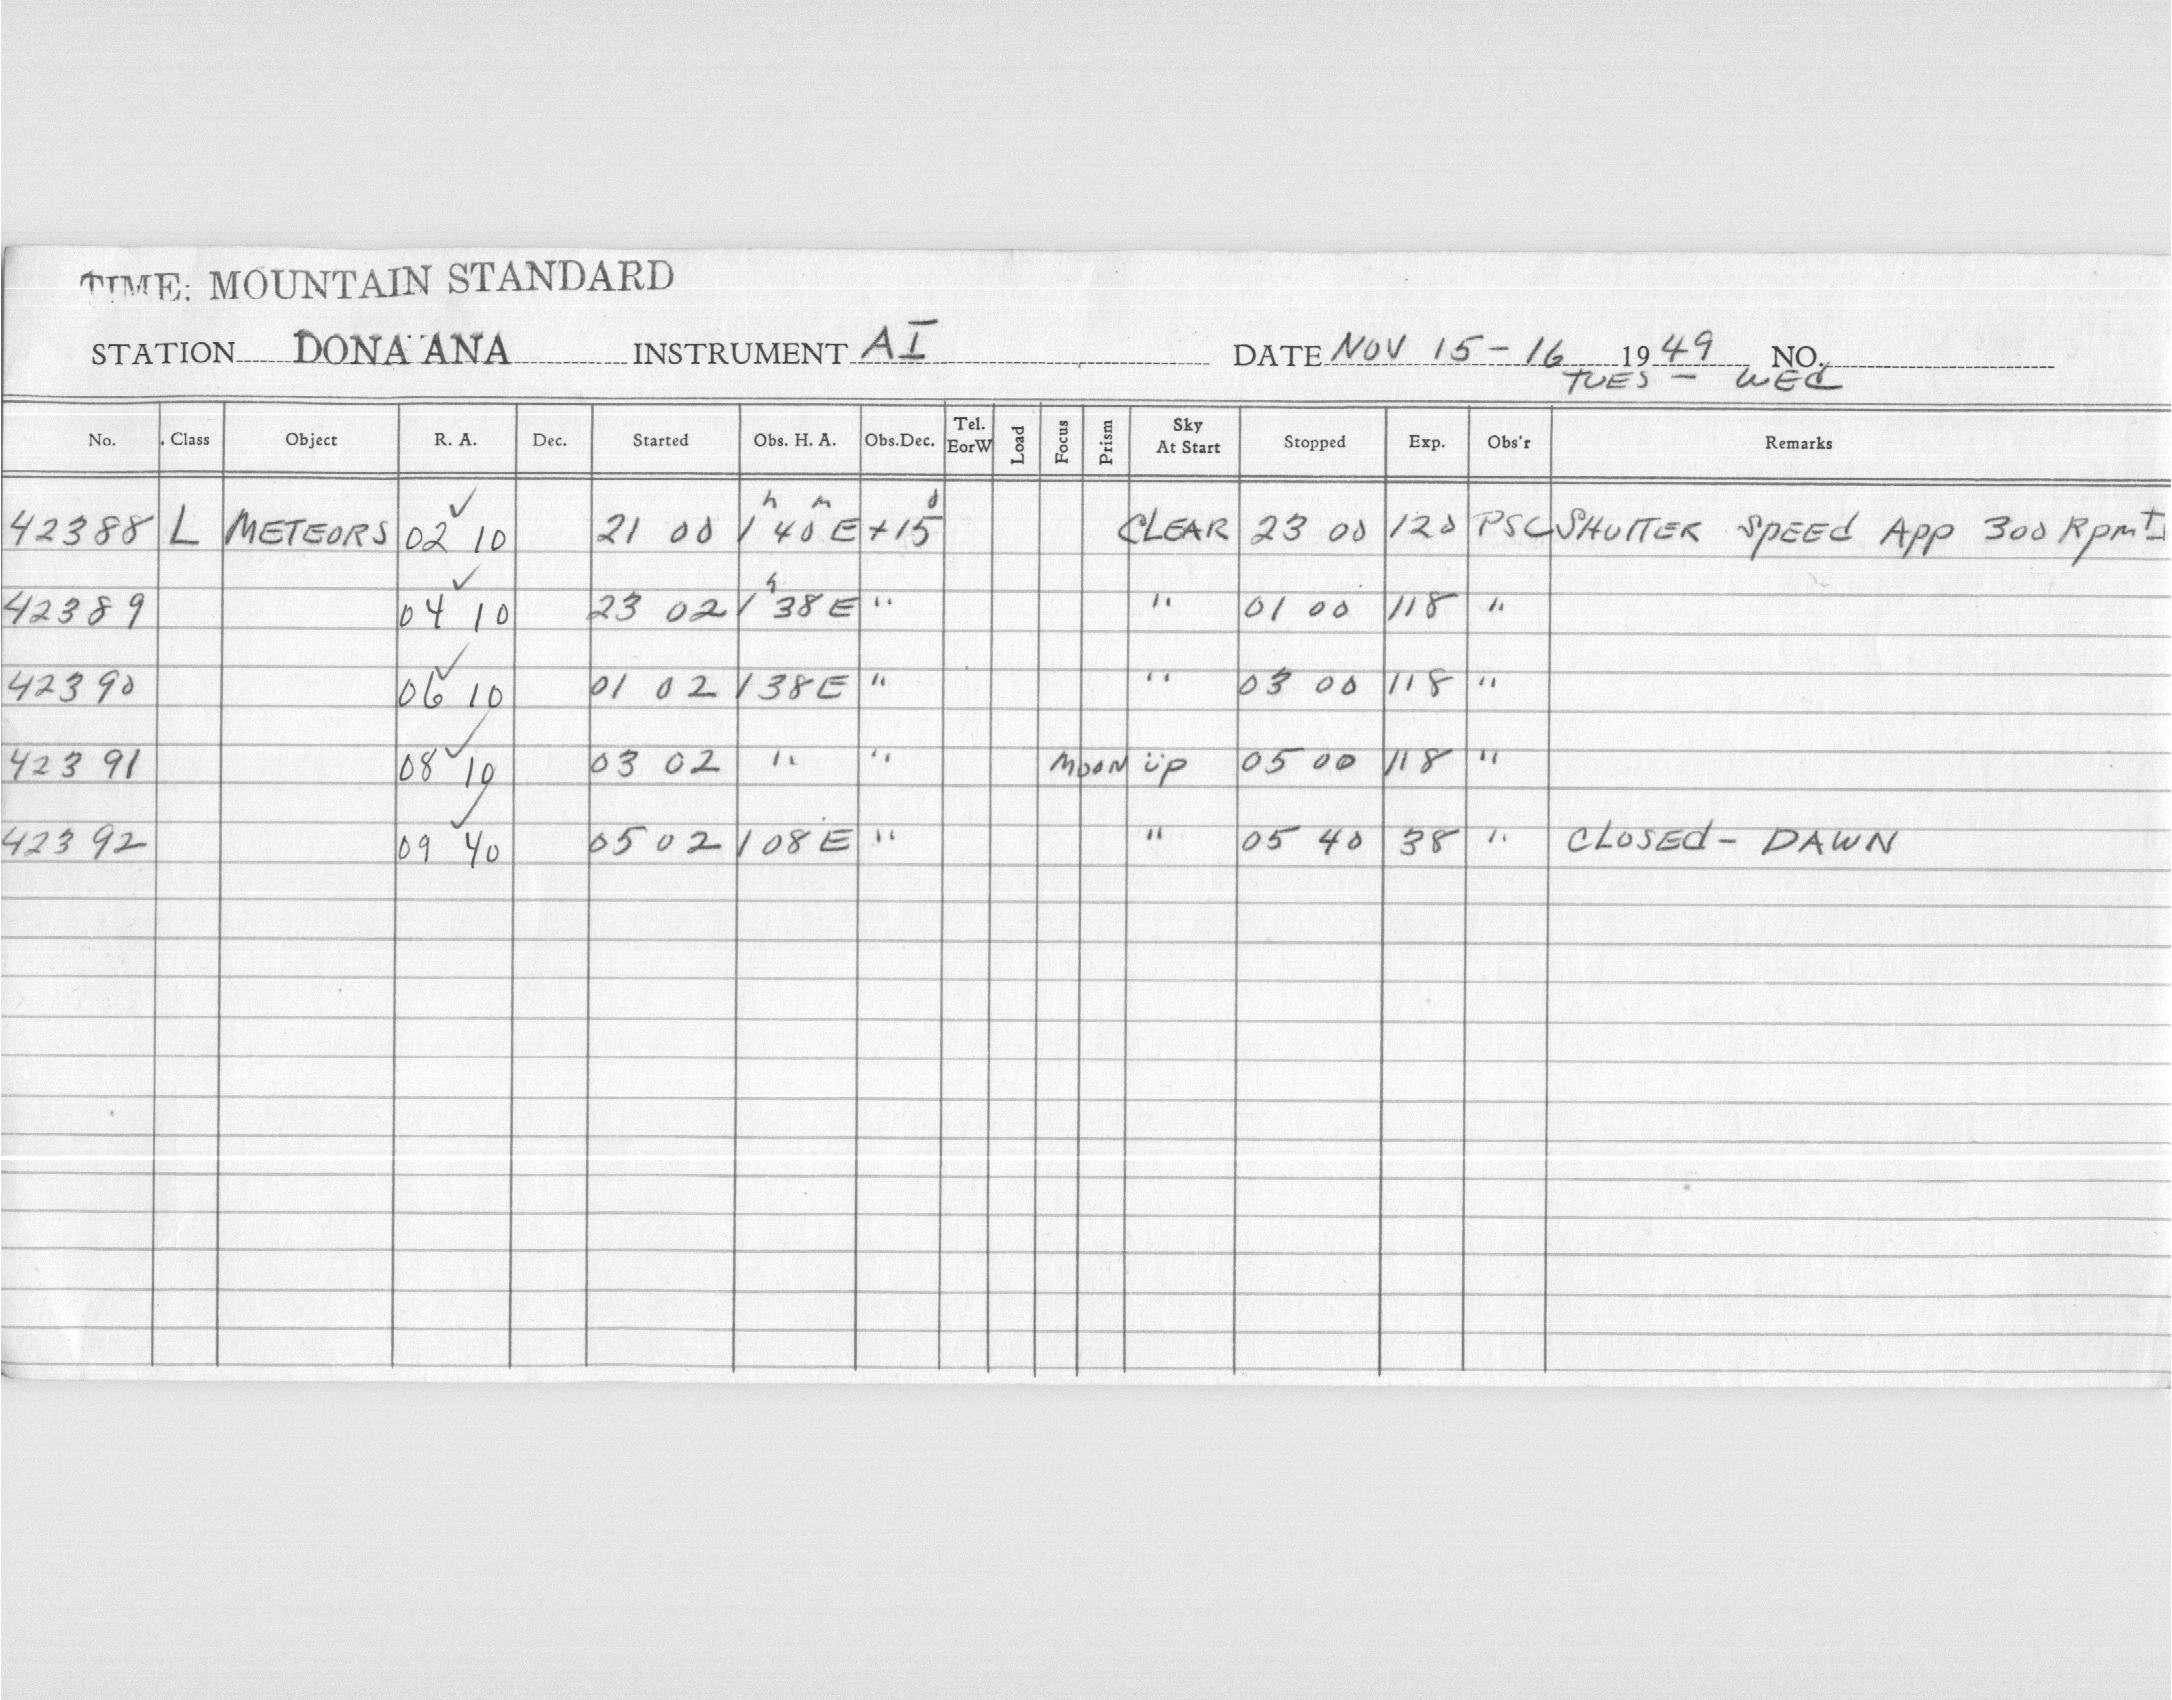 TIME: MOUNTAIN STANDARD
STATION DONA ANA INSTRUMENT AI DATE NOV 15-16 1949 NO.
TUES - WED
No. Class Object R. A. Dec. Started Obs. H. A. Obs.Dec. Tel. EorW Load Focus Prism Sky At Start Stopped Exp. Obs'r Remarks
42388 L METEORS 02 10 ✓ 21 00 1h 40m E +15° CLEAR 23 00 120 PSC SHUTTER SPEEd App 300 Rpm ±
42389 04 10 ✓ 23 02 1h 38 E " " 01 00 118 "
42390 06 10 ✓ 01 02 1 38 E " " 03 00 118 "
42391 08 10 ✓ 03 02 " " MOON up 05 00 118 "
42392 09 40 ✓ 05 02 1 08 E " " 05 40 38 " CLOSEd - DAWN